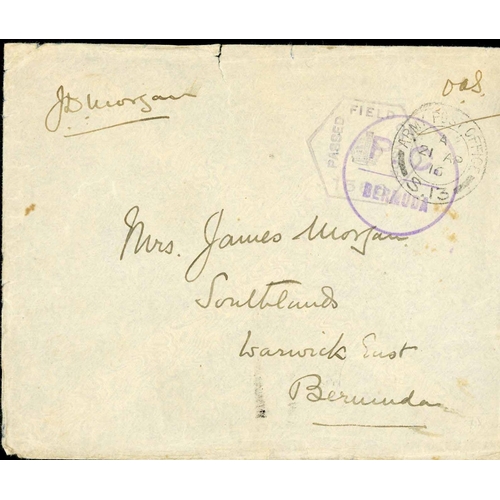 JD Morgan
OAS.
PASSED FIELD
P C
BERMUDA
ARMY POST OFFICE
A
21 AP
16
S.13
Mrs. James Morgan
Southlands
Warwick East
Bermuda